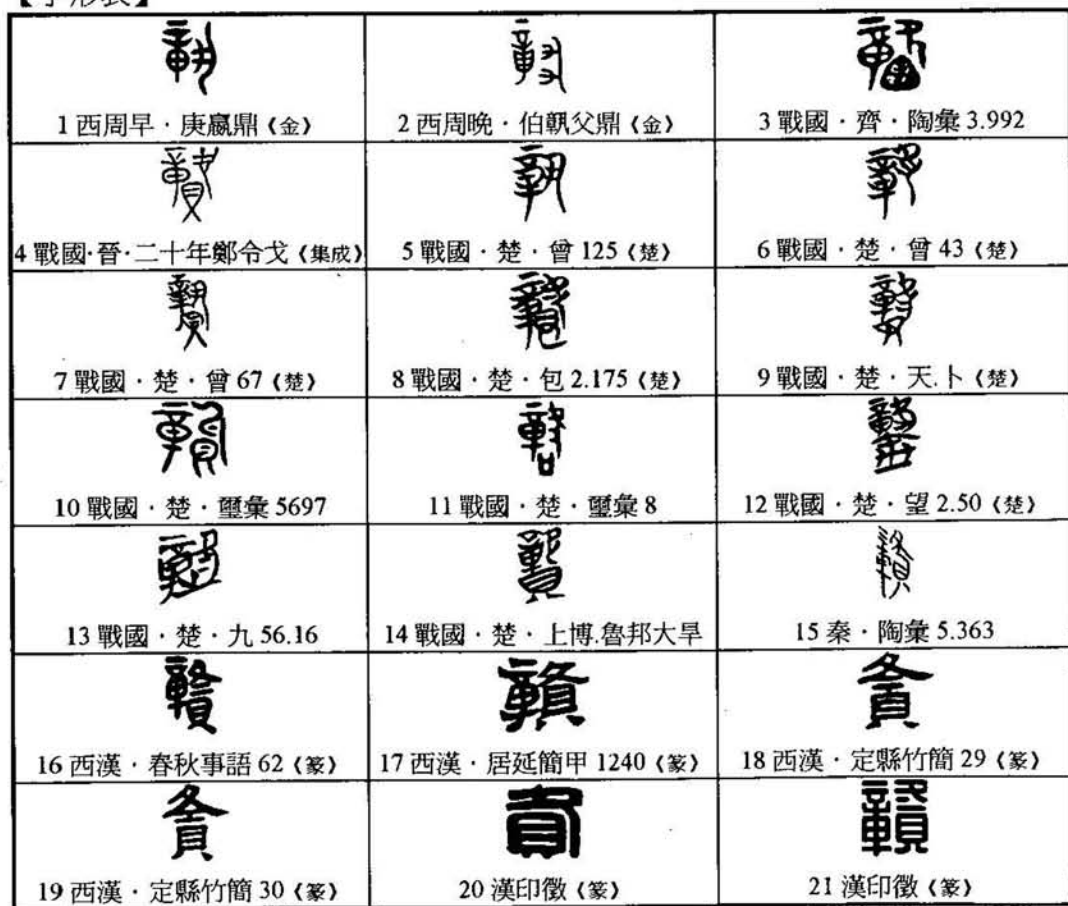 【字形表】
1 西周早．庚嬴鼎《金》 2 西周晚．伯𩏑父鼎《金》 3 戰國．齊．陶彙 3.992
4 戰國．晉．二十年鄭令戈《集成》 5 戰國．楚．曾 125《楚》 6 戰國．楚．曾 43《楚》
7 戰國．楚．曾 67《楚》 8 戰國．楚．包 2.175《楚》 9 戰國．楚．天.卜《楚》
10 戰國．楚．璽彙 5697 11 戰國．楚．璽彙 8 12 戰國．楚．望 2.50《楚》
13 戰國．楚．九 56.16 14 戰國．楚．上博.魯邦大旱 15 秦．陶彙 5.363
16 西漢．春秋事語 62《篆》 17 西漢．居延簡甲 1240《篆》 18 西漢．定縣竹簡 29《篆》
19 西漢．定縣竹簡 30《篆》 20 漢印徵《篆》 21 漢印徵《篆》